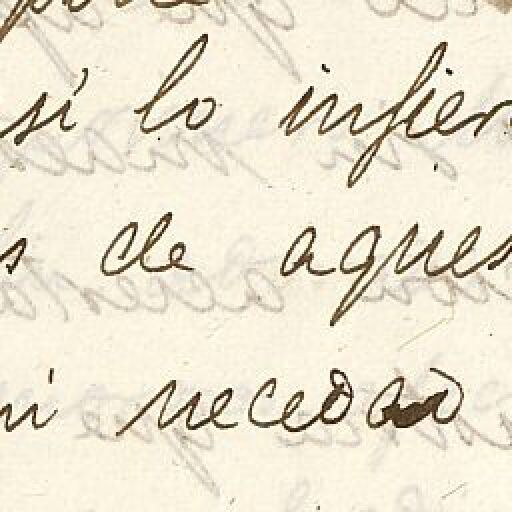 si lo infier
s de aques
ni necedad